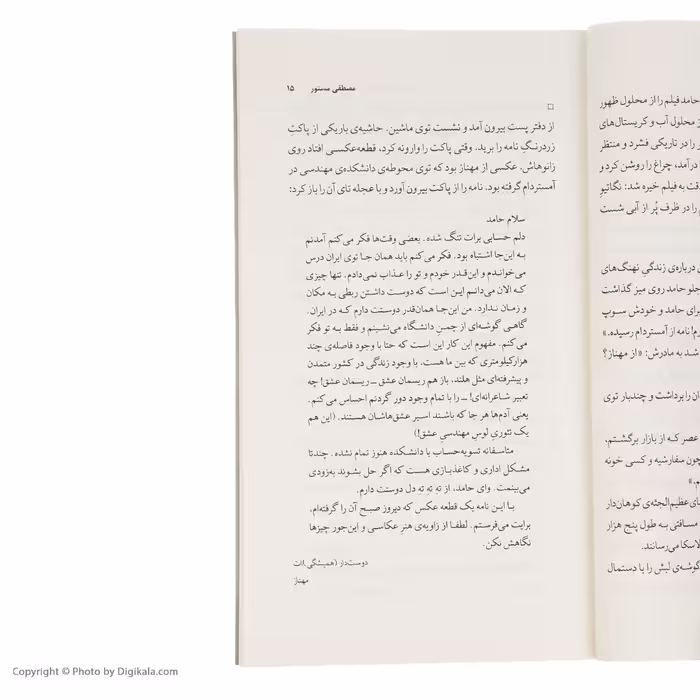 مصطفی مستور ۱۵
از دفتر پست بیرون آمد و نشست توی ماشین. حاشیه‌ی باریکی از پاکتِ
زردرنگِ نامه را برید. وقتی پاکت را وارونه کرد، قطعه‌عکسی افتاد روی
زانوهاش. عکسی از مهناز بود که توی محوطه‌ی دانشکده‌ی مهندسی در
آمستردام گرفته بود. نامه را از پاکت بیرون آورد و با عجله تای آن را باز کرد:
سلام حامد
دلم حسابی برات تنگ شده. بعضی وقت‌ها فکر می‌کنم آمدنم
به این‌جا اشتباه بود. فکر می‌کنم باید همان جا توی ایران درس
می‌خواندم و این‌قدر خودم و تو را عذاب نمی‌دادم. تنها چیزی
که الان می‌دانم این است که دوست داشتن ربطی به مکان
و زمان ندارد. من این‌جا همان‌قدر دوستت دارم که در ایران.
گاهی گوشه‌ای از چمنِ دانشگاه می‌نشینم و فقط به تو فکر
می‌کنم. مفهوم این کار این است که حتا با وجود فاصله‌ی چند
هزارکیلومتری که بین ما هست، با وجود زندگی در کشور متمدن
و پیشرفته‌ای مثل هلند، باز هم ریسمان عشق ــ ریسمان عشق! چه
تعبیر شاعرانه‌ای! ــ را با تمام وجود دور گردنم احساس می‌کنم.
یعنی آدم‌ها هر جا که باشند اسیر عشق‌هاشان هستند. (این هم
یک تئوریِ لوسِ مهندسیِ عشق!)
متاسفانه تسویه‌حساب با دانشکده هنوز تمام نشده. چندتا
مشکل اداری و کاغذبازی هست که اگر حل بشوند به‌زودی
می‌بینمت. وای حامد، از تهِ تهِ تهِ دل دوستت دارم.
با این نامه یک قطعه عکس که دیروز صبح آن را گرفته‌ام،
برایت می‌فرستم. لطفا از زاویه‌ی هنرِ عکاسی و این‌جور چیزها
نگاهش نکن.
دوست‌دارِ (همیشگی)ات
مهناز
حامد فیلم را از محلول ظهور
محلول آب و کریستال‌های
را در تاریکی فشرد و منتظر
درآمد، چراغ را روشن کرد و
دقت به فیلم خیره شد: نگاتیو
را در ظرف پُر از آبی شست
درباره‌ی زندگیِ نهنگ‌های
جلو حامد روی میز گذاشت
برای حامد و خودش سوپ
نامه از آمستردام رسیده.»
شد به مادرش: «از مهناز؟
را برداشت و چندبار توی
عصر که از بازار برگشتم،
چون سفارشیه و کسی خونه
عظیم‌الجثه‌ی کوهان‌دار
مسافتی به طول پنج هزار
می‌رسانند.
گوشه‌ی لبش را با دستمال
Copyright © Photo by Digikala.com